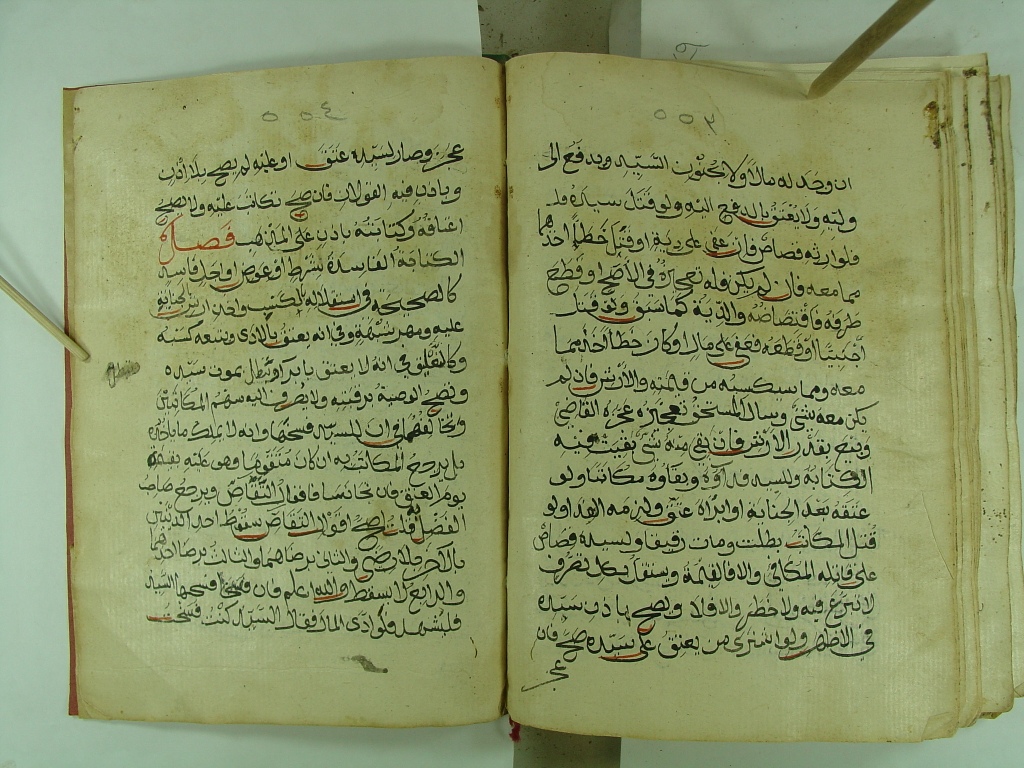 ٥٥٣
ان وجد له مالا ولا بجنون السيد ويدفع الى
وليه ولا يعتق بالدفع اليه ولو قتل سيده فلـ
فلوارثه قصاص فان عفى على دية او قتل خطأ اخذها
مما معه فان لم يكن فله تعجيزه في الاصح او قطع
طرفه فاقتصاصه والدية كما سبق ولو قتل
اجنبيا او قطعه فعفى على مال او كان خطأ اخذ مما
معه ومما سيكسبه من قيمته والارش فان لم
يكن معه شي وسال المستحق تعجيزه عجزه القاضي
وبيع بقدر الارش فان بقى منه شي بقيت فيه
الكتابة وللسيد فداؤه وبقاوه مكاتبا ولو
عتقه بعد الجناية او ابراه عتق ولزمه الفدا ولو
قتل المكاتب بطلت ومات رقيقا ولسيده قصاص
على قاتله المكافي والا فالقيمة ويستقل بكل تصرف
لا تبرع فيه ولا خطر والا فلا ويصح باذن سيده
في الاظهر ولو اشترى من يعتق على سيده صح فان
عجز
٥٥٤
عجز وصار لسيده عتق او عليه لم يصح بلا اذن
وباذن فيه القولان فان صح تكاتب عليه ولا يصح
اعتاقه وكتابته باذن على المذهب فصل
الكتابة الفاسدة لشرط او عوض او اجل فاسد
كالصحيحة في استقلاله بالكسب واخذ ارش الجناية
عليه ومهر شبهة وفي انه يعتق بالادى ويتبعه كسبه
وكالتعليق في انه لا يعتق بابرا وتبطل بموت سيده
وتصح الوصية برقبته ولا يصرف اليه سهم المكاتبين
وتخالفهما في ان للسيد فسخها وانه لا يملك ما ياخذه
بل يرجع المكاتب به ان كان متقوما وهو عليه بقيمته
يوم العتق فان تجانسا فاقوال التقاص ويرجع صاحب
الفضل قلت اصح اقوال التقاص سقوط احد الدينين
بالاخر بلا رضى والثاني برضاهما والثالث برضا احدهما
والرابع لا يسقط والله اعلم فان فسخها السيد
فليشهد فلو ادى المال فقال السيد كنت فسخت